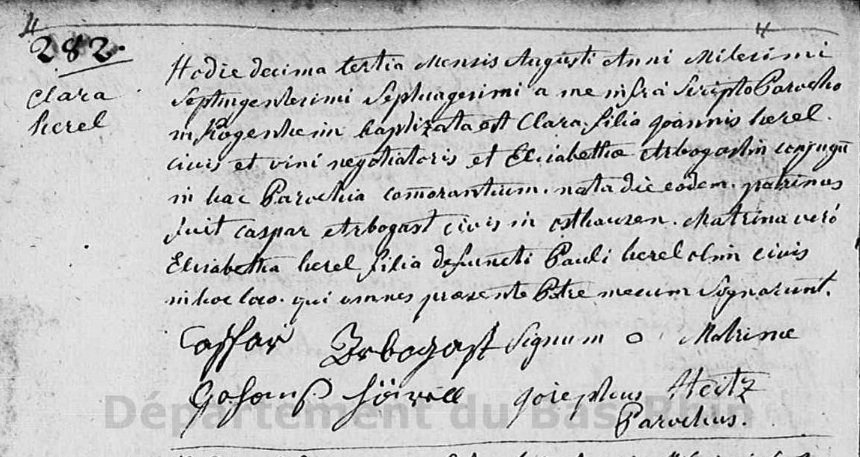 4
4
282.
Clara
herel
Hodie decima tertia Mensis Augusti Anni Milesimi
Septingentesimi Septuagesimi a me infra Scripto Parocho
in Rögenheim baptizata est Clara filia Joannis herel.
civis et vini negotiatoris et Elisabethæ Arbogastin conjugū
in hac Parochia comorantium. nata die eodem. patrinus
fuit caspar Arbogast civis in osthausen. Matrina verò
Elisabetha herel filia defuncti Pauli herel olim civis
in hoc loco. qui omnes præsente Patre mecum Signarunt.
Casfar Arbogast Signum o Matrinæ
Johans
Josephus Heitz
Parochus.
Département du Bas-Rhin